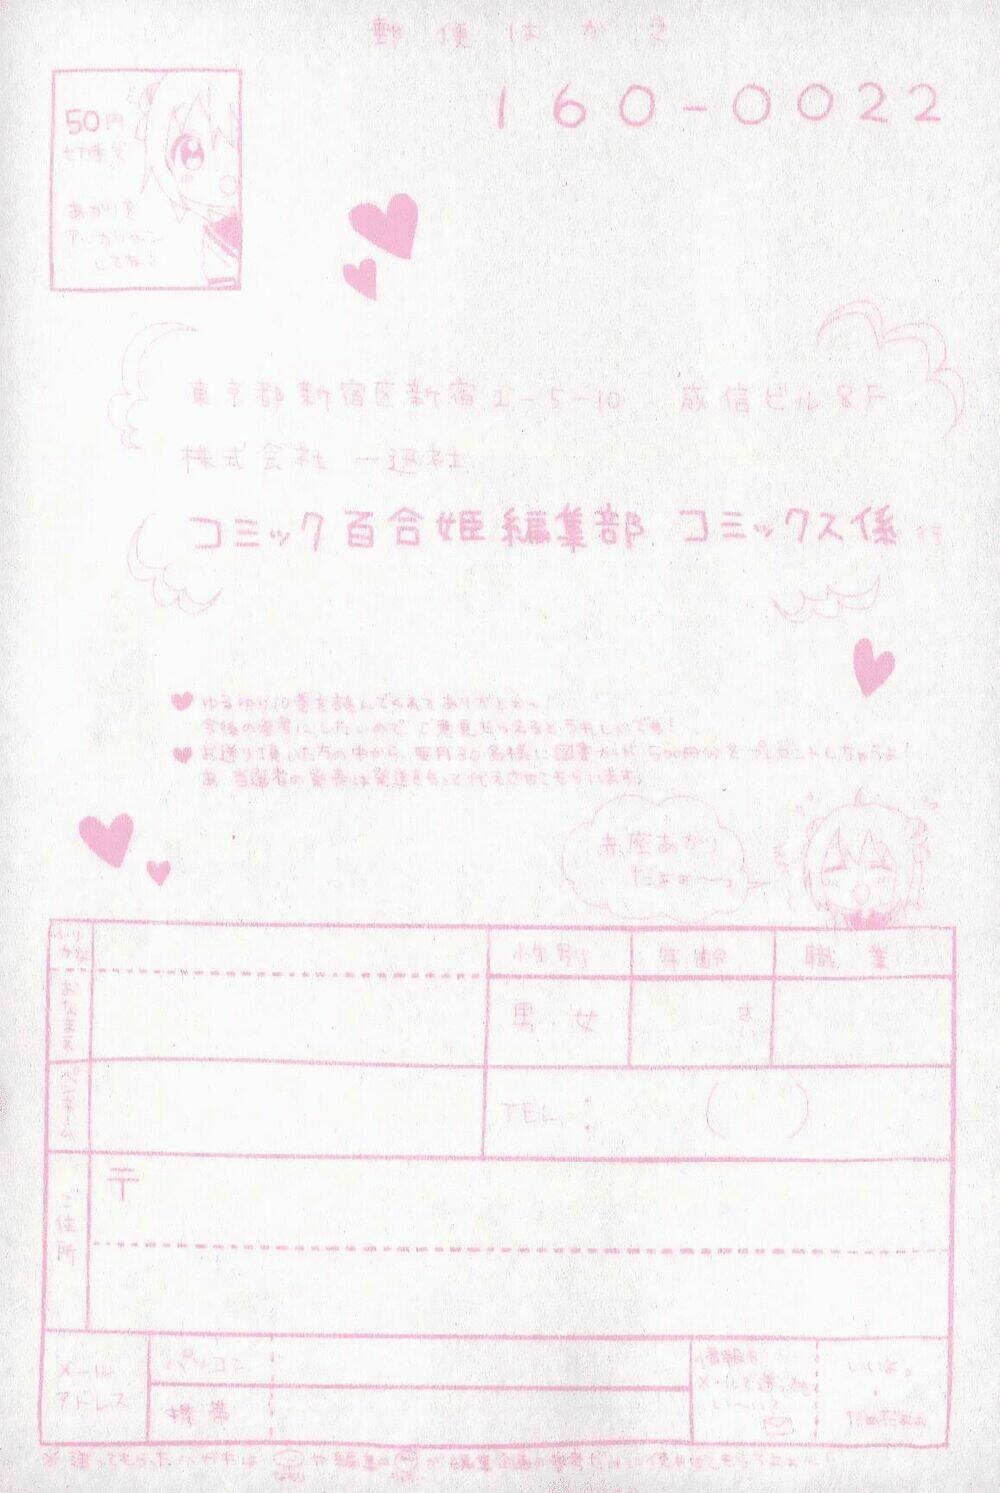 郵便はがき
160-0022
50円
切手で
あかりを
アッカリ〜ン
してね♪
東京都新宿区新宿2-5-10 成信ビル8F
株式会社 一迅社
コミック百合姫編集部 コミックス係 行
♥ ゆるゆり10巻を読んでくれてありがとぉ〜!
今後の参考にしたいので ご意見もらえるとうれしいです!
♥ お送り頂いた方の中から、毎月30名様に図書カード 500円分をプレゼントしちゃうよ!
あ、当選者の発表は発送をもって代えさせてもらいます。
赤座あかり
だよぉ〜っ
ふりがな
性別 年齢 職業
おなまえ
男・女 さい
ペンネーム
TEL: ( )
〒
ご住所
メール
アドレス
パソコン
携帯
情報を
メールで送っても
い〜い?
いいよっ
・
だめだよぉ
※送ってもらったハガキは や編集の が編集企画の参考だけに使わせてもらうよぉ〜!